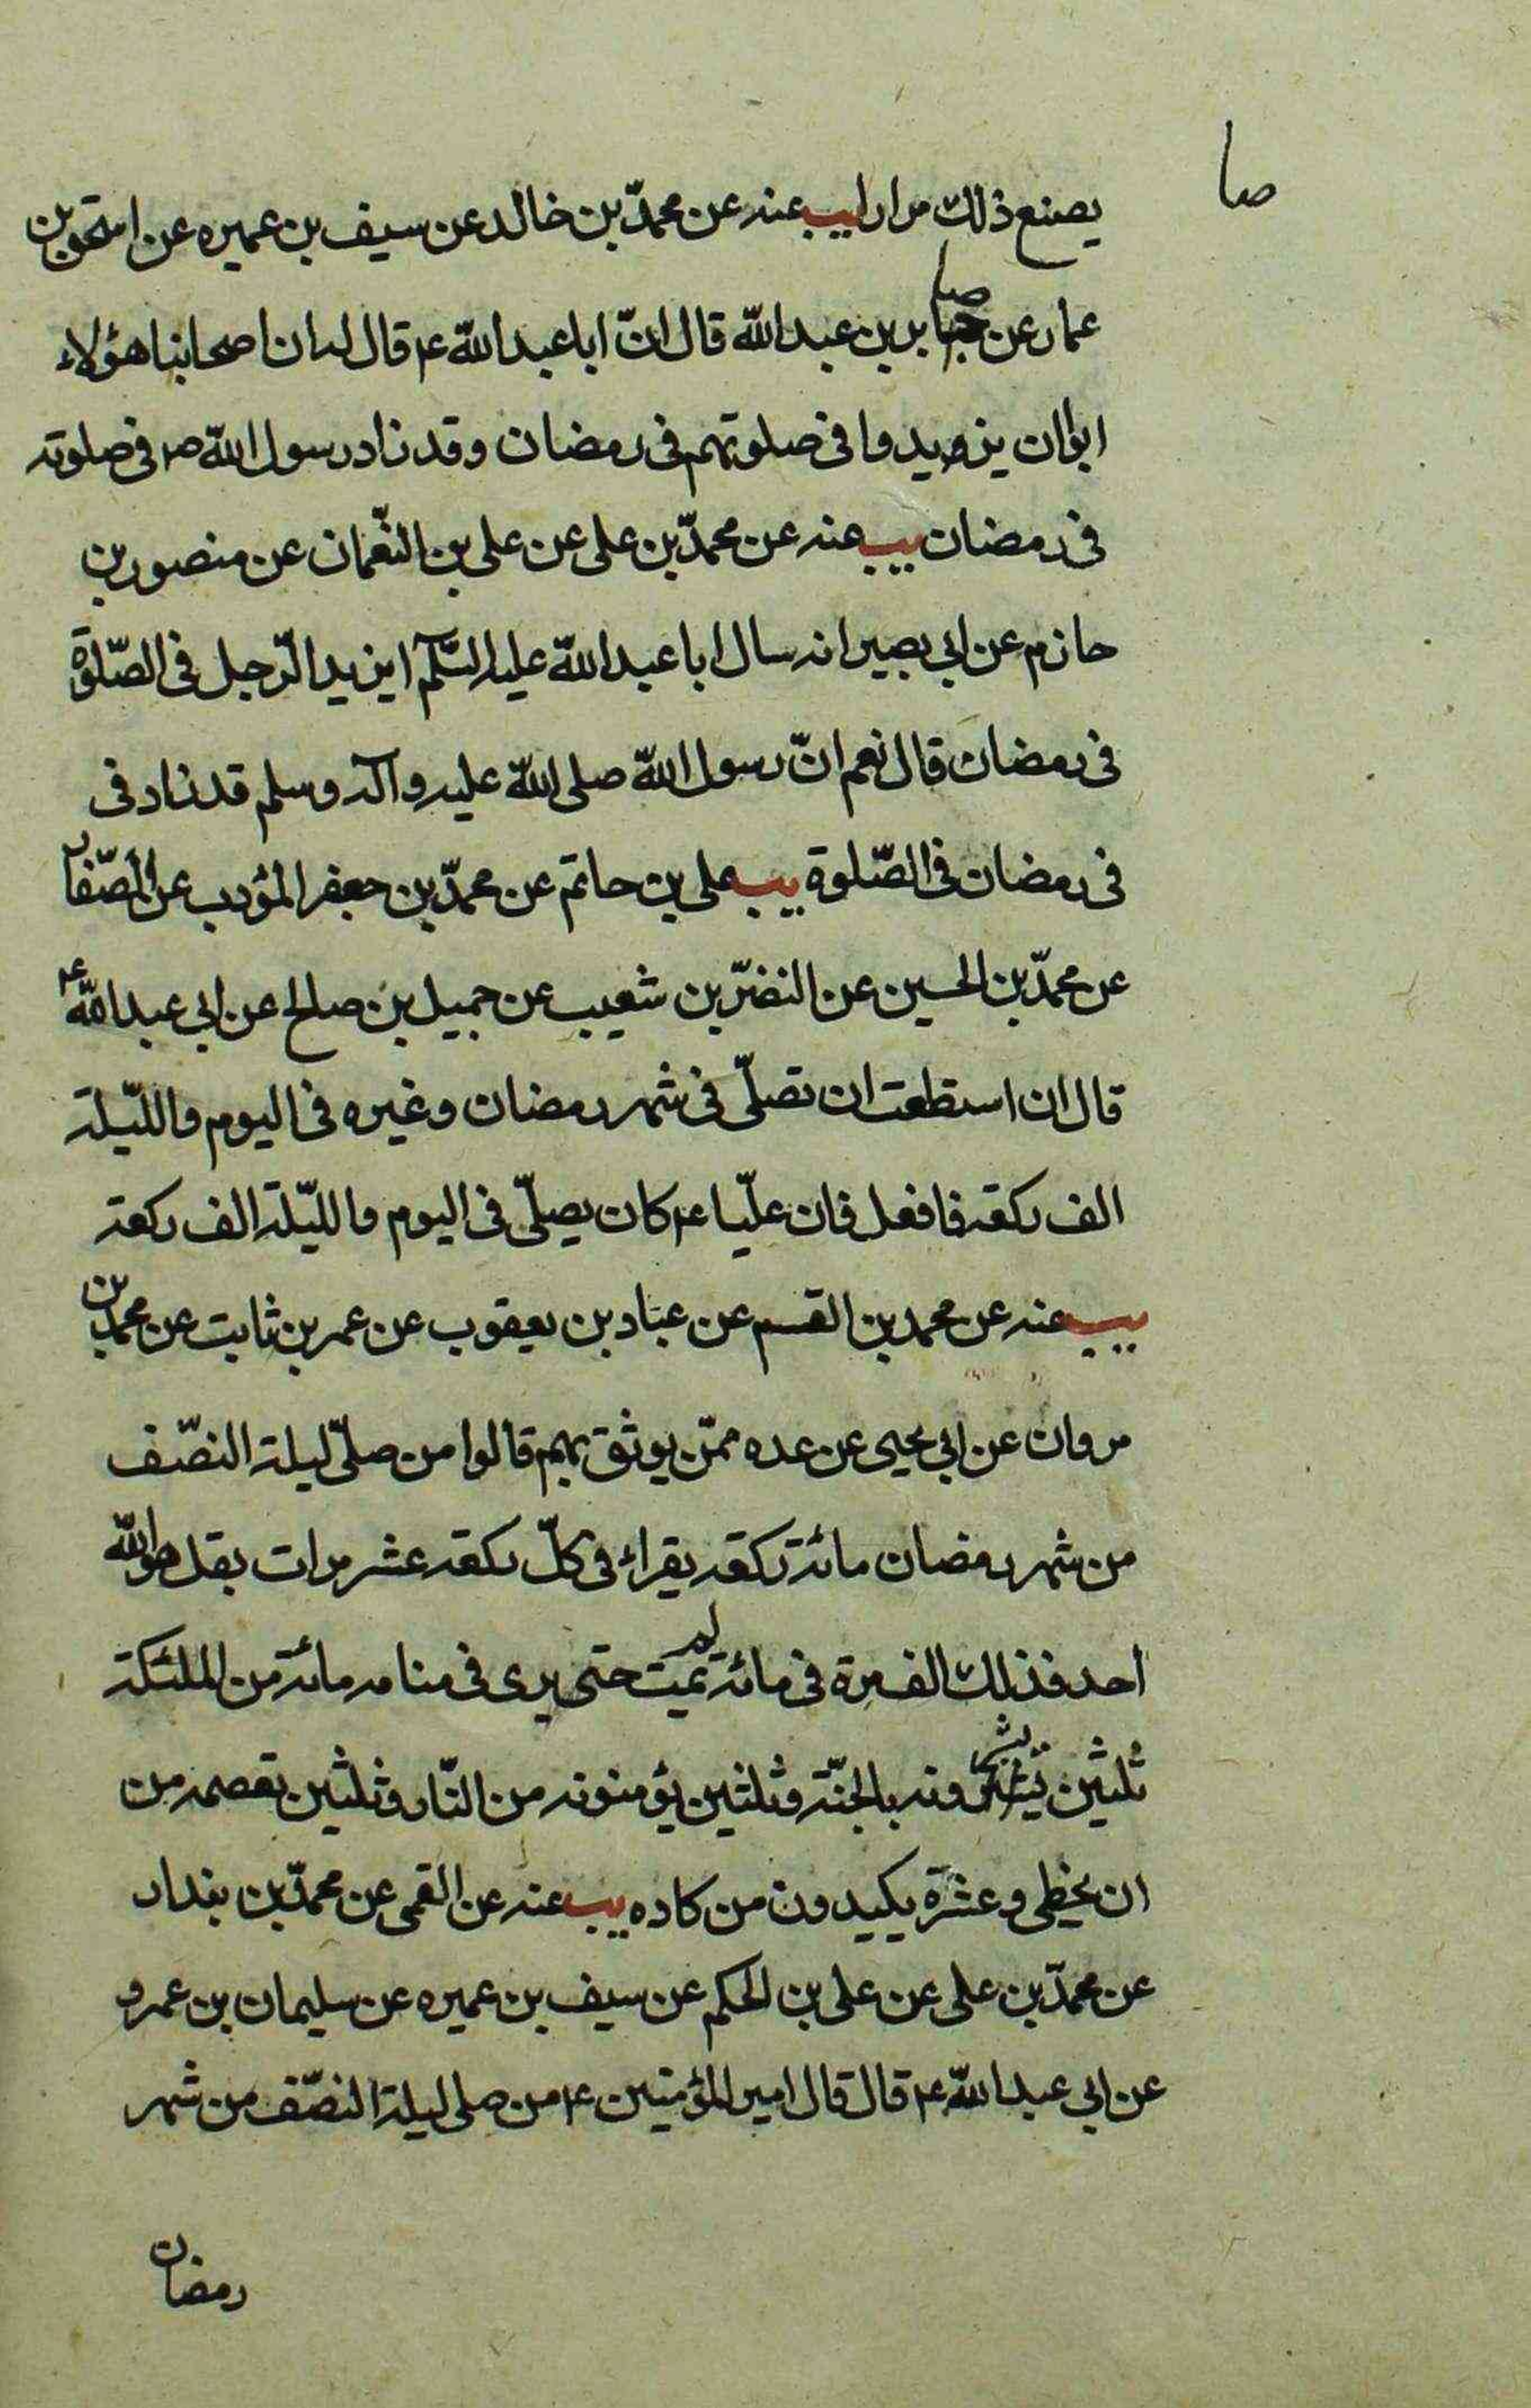 صا
يصنع ذلك مرارا يب عنه عن محمّد بن خالد عن سيف بن عميره عن اسحق بن
عمار عن جابر بن عبد الله قال انّ ابا عبد الله ع قال له ان اصحابنا هؤلاء
ابوا ان يزيدوا فى صلوتهم فى رمضان وقد زاد رسول الله ص فى صلوته
فى رمضان يب عنه عن محمّد بن على عن على بن النّعمان عن منصور بن
حازم عن ابى بصير انه سال ابا عبد الله عليه السّلم ايزيد الرّجل فى الصّلوة
فى رمضان قال نعم انّ رسول الله صلى الله عليه وآله وسلم قد زاد فى
فى رمضان فى الصّلوة يب على بن حاتم عن محمّد بن جعفر المؤدب عن الصّفار
عن محمّد بن الحسين عن النضرّ بن شعيب عن جميل بن صالح عن ابى عبد الله ع
قال ان استطعت ان تصلّى فى شهر رمضان وغيره فى اليوم والليّلة
الف ركعة فافعل فان عليّا ع كان يصلّى فى اليوم والليّلة الف ركعة
يب عنه عن محمد بن القسم عن عباد بن يعقوب عن عمر بن ثابت عن محمد بن
مروان عن ابى يحيى عن عده ممّن يوثق بهم قالوا من صلّى ليلة النصّف
من شهر رمضان مائة ركعة يقراء فى كلّ ركعة عشر مرات بقل هو الله
احد فذلك الف مرة فى مائة لم يمت حتى يرى فى منامه مائة من الملئكة
ثلثين يبشرونه بالجنّة وثلثين يؤمنونه من النّار وثلثين تعصمه من
ان يخطى وعشرة يكيدون من كاده يب عنه عن القمى عن محمّد بن بغداد
عن محمّد بن على عن على بن الحكم عن سيف بن عميره عن سليمان بن عمرو
عن ابى عبد الله ع قال قال امير المؤمنين ع من صلى ليلة النصّف من شهر
رمضان